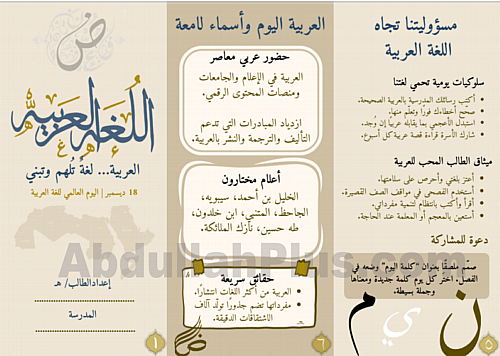 مسؤوليتنا تجاه
اللغة العربية
سلوكيات يومية تحمي لغتنا
أكتب رسائلك المدرسية بالعربية الصحيحة.
صحّح أخطاءك فورًا وتعلّم منها.
استبدل الأعجمي بما يقابله عربيًا إن وُجد.
شارك الأسرة قراءة قصة عربية كل أسبوع.
ميثاق الطالب المحب للعربية
أعتز بلغتي وأحرص على سلامتها.
أستخدم الفصحى في مواقف الصف القصيرة.
أقرأ وأكتب بانتظام لتنمية مفرداتي.
أستعين بالمعجم أو المعلمة عند الحاجة.
دعوة للمشاركة
صمّم ملصقًا بعنوان "كلمة اليوم" وضعه في
الفصل. اختَر كل يوم كلمة جديدة ومعناها
وجملة بسيطة.
ن
ي
م
٥
العربية اليوم وأسماء لامعة
حضور عربي معاصر
العربية في الإعلام والجامعات
ومنصات المحتوى الرقمي.
ازدياد المبادرات التي تدعم
التأليف والترجمة والنشر بالعربية.
أعلام مختارون
الخليل بن أحمد، سيبويه،
الجاحظ، المتنبي، ابن خلدون،
طه حسين، نازك الملائكة.
حقائق سريعة
العربية من أكثر اللغات انتشارًا.
مفرداتها تضم جذورًا تولّد آلاف
الاشتقاقات الدقيقة.
٦
ض
اللغة العربية
العربية... لغةٌ تُلهم وتبني
18 ديسمبر | اليوم العالمي للغة العربية
إعداد الطالب/ هـ
المدرسة
١
AbdullahPlus.com